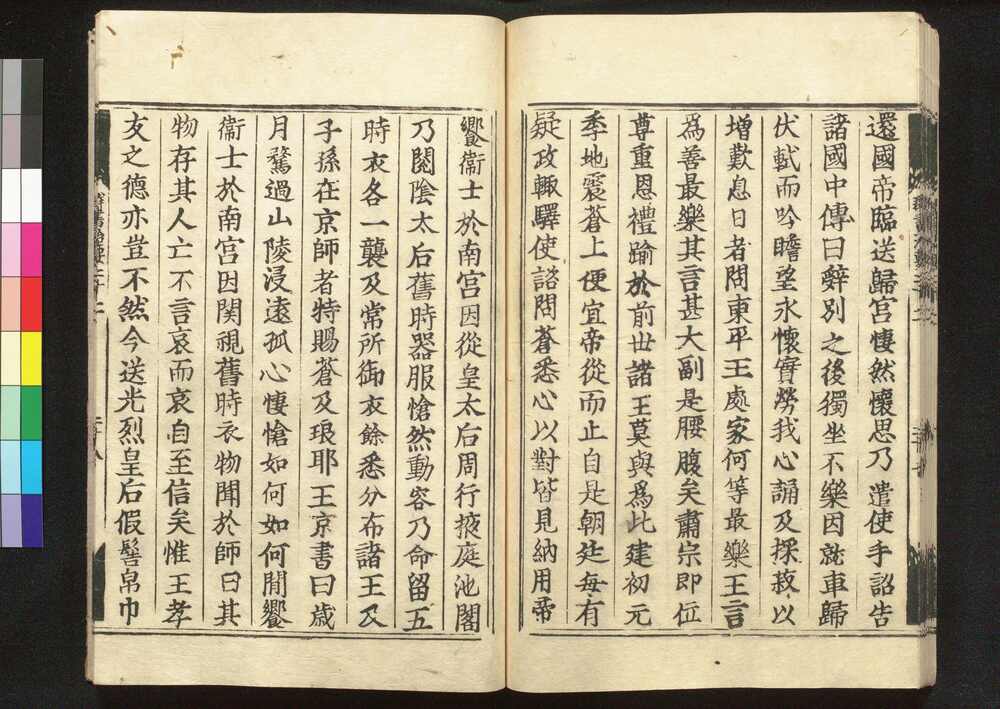 還國帝臨送歸宮悽然懷思乃遣使手詔告
諸國中傳曰辭別之後獨坐不樂因就車歸
伏軾而吟瞻望永懷實勞我心誦及採菽以
增歎息日者問東平王處家何等最樂王言
為善最樂其言甚大副是腰腹矣肅宗即位
尊重恩禮踰於前世諸王莫與為比建初元
季地震蒼上便宜帝從而止自是朝廷每有
疑政輒驛使諮問蒼悉心以對皆見納用帝
饗衞士於南宮因從皇太后周行掖庭池閣
乃閱陰太后舊時器服愴然動容乃命留五
時衣各一襲及常所御衣餘悉分布諸王及
子孫在京師者特賜蒼及琅耶王京書曰歲
月騖過山陵浸遠孤心悽愴如何如何間饗
衞士於南宮因閱視舊時衣物聞於師曰其
物存其人亡不言哀而哀自至信矣惟王孝
友之德亦豈不然今送光烈皇后假髻帛巾